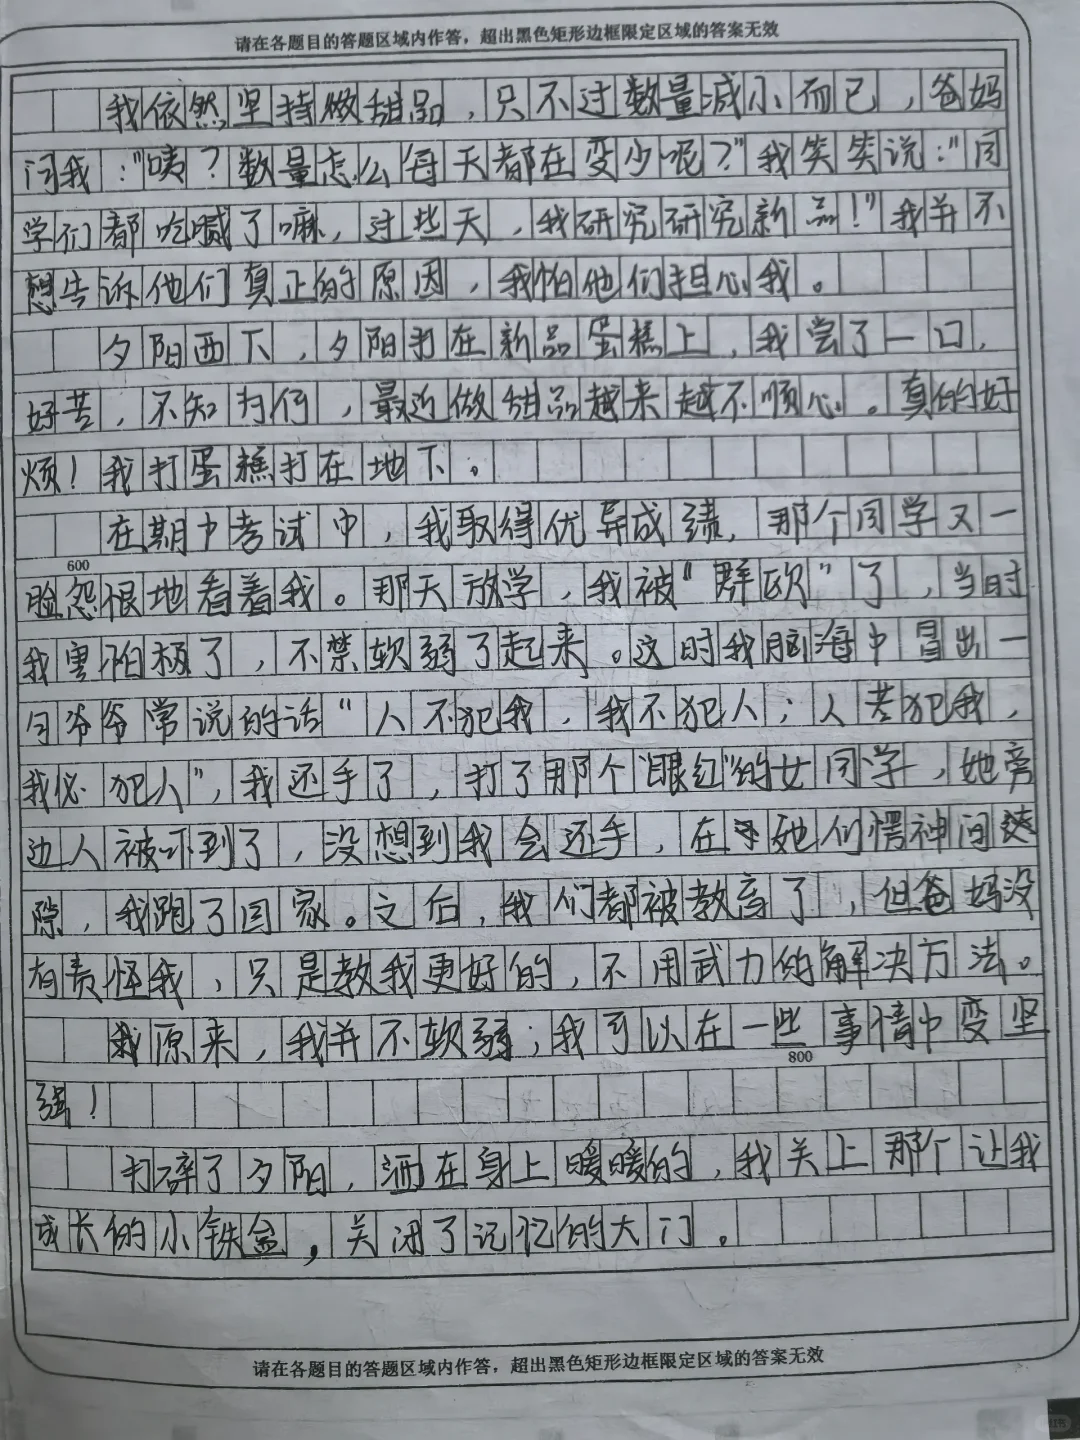 请在各题目的答题区域内作答，超出黑色矩形边框限定区域的答案无效
我依然坚持做甜品，只不过数量减小而已，爸妈
问我："咦？数量怎么每天都在变少呢？"我笑笑说："同
学们都吃腻了嘛，过些天，我研究研究新品！"我并不
想告诉他们真正的原因，我怕他们担心我。
夕阳西下，夕阳打在新品蛋糕上，我尝了一口，
好苦，不知为何，最近做甜品越来越不顺心。真的好
烦！我打蛋糕打在地下。
在期中考试中，我取得优异成绩，那个同学又一
600
脸怨恨地看着我。那天放学，我被"群欧"了，当时
我害怕极了，不禁软弱了起来。这时我脑海中冒出一
句爷爷常说的话"人不犯我，我不犯人；人若犯我，
我必犯人"，我还手了，打了那个"眼红"的女同学，她旁
边人被吓到了，没想到我会还手，在她们愣神间
隙，我跑了回家。之后，我们都被教育了，但爸妈没
有责怪我，只是教我更好的，不用武力的解决方法。
原来，我并不软弱；我可以在一些事情中变坚
800
强！
打碎了夕阳，洒在身上暖暖的，我关上那个让我
成长的小铁盒，关闭了记忆的大门。
请在各题目的答题区域内作答，超出黑色矩形边框限定区域的答案无效